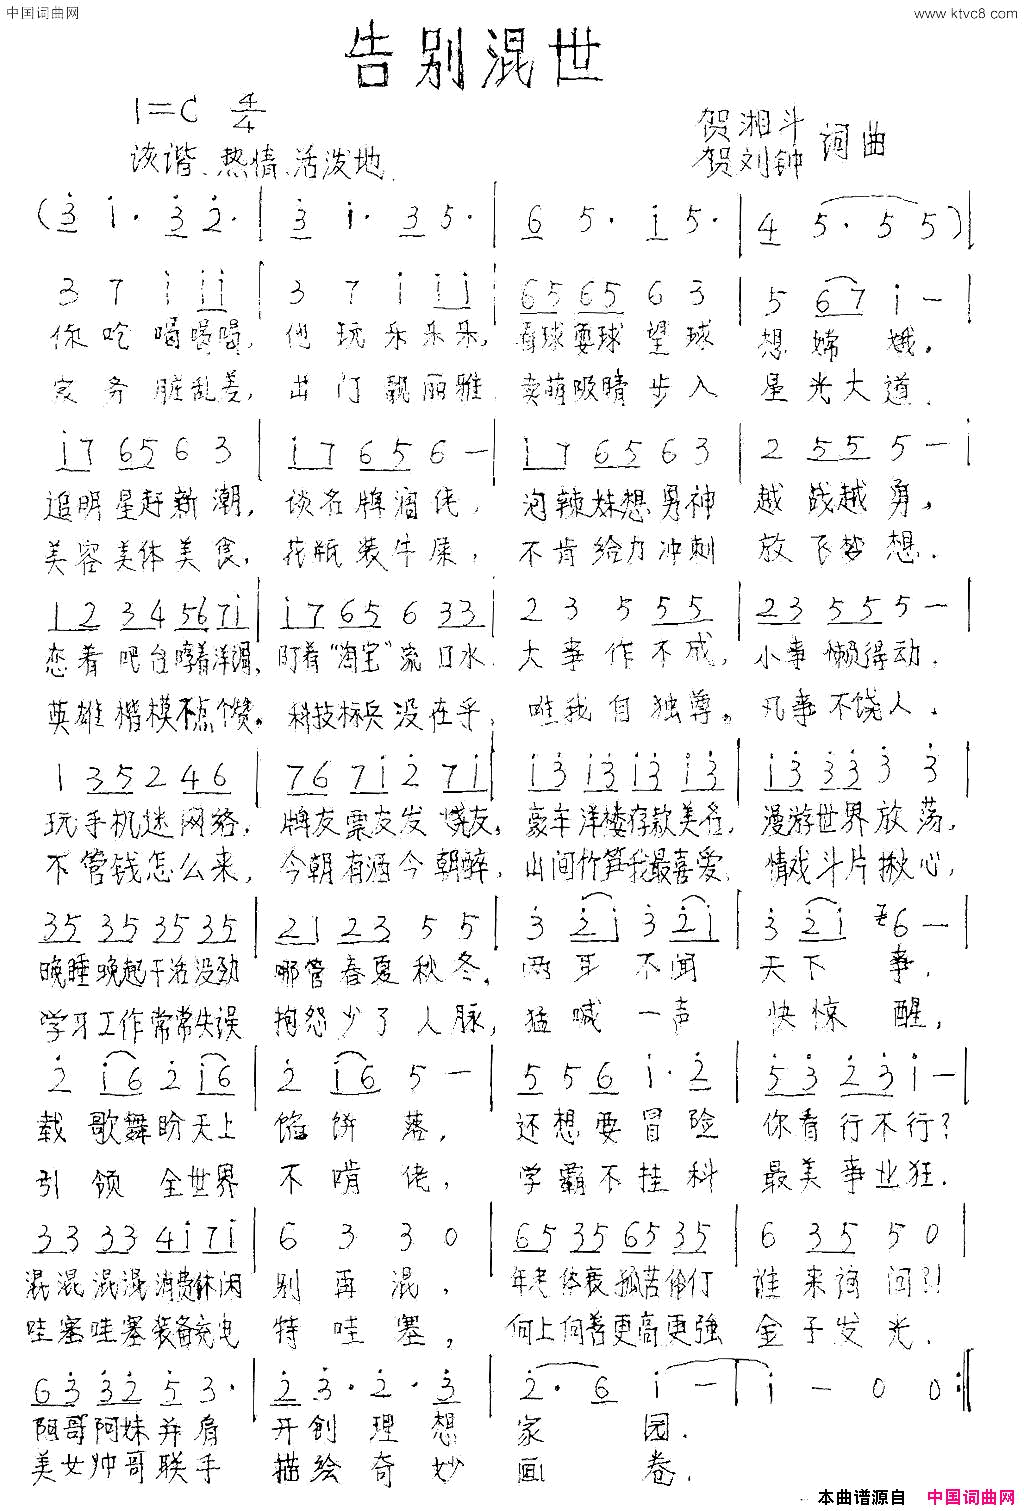 中国词曲网
www.ktvc8.com
告别混世
1=C 4/4
贺湘斗
贺刘钟 词曲
诙谐、热情、活泼地
(3 i· 3 2· | 3 i· 3 5· | 6 5· i 5· | 4 5· 5 5)
3 7 i i i | 3 7 i i i | 65 65 6 3 | 5 67 i —
你吃喝喝喝, 他玩乐乐乐, 看球耍球望球 想嫦娥。
家务脏乱差, 出门靓丽雅. 卖萌吸睛步入 星光大道.
i7 65 6 3 | i7 65 6 — | i7 65 6 3 | 2 55 5 —
追明星赶新潮, 谈名牌 佬, 泡辣妹想男神 越战越勇,
美容美体美食, 花瓶装牛屎, 不肯给力冲刺 放飞梦想.
12 34 56 7i | i7 65 6 33 | 2 3 5 55 | 23 55 5 —
恋着吧台哼着洋调, 盯着“淘宝”流口水. 大事作不成, 小事懒得动.
英雄楷模不点个赞。 科技标兵没在乎, 唯我自独尊。 凡事不饶人.
1 35 2 46 | 76 7i 2 7i | i3 i3 i3 i3 | i3 33 3 3
玩手机迷网络, 牌友票友发烧友, 豪车洋楼存款美名, 漫游世界放荡,
不管钱怎么来, 今朝有酒今朝醉, 山间竹笋我最喜爱, 情戏斗片揪心,
35 35 35 35 | 21 23 5 5 | 3 2i 3 2i | 3 2i 6 —
晚睡晚起干活没劲 哪管春夏秋冬. 两耳不闻 天下事.
学习工作常常失误 抱怨少了人脉, 猛喊一声 快惊醒,
2 i6 2 i6 | 2 i6 5 — | 5 5 6 i· 2 | 5 3 2 3 i —
载歌舞盼天上 馅饼落, 还想要冒险 你看行不行?
引领全世界 不啃佬, 学霸不挂科 最美事业狂.
33 33 4i 7i | 6 3 3 0 | 65 35 65 35 | 6 35 5 0
混混混混消费休闲 别再混, 年老体衰孤苦伶仃 谁来询问?!
哇塞哇塞装备充电 特哇塞, 向上向善更高更强 金子发光.
63 32 5 3· | 2 3· 2· 3 | 2· 6 i — | i — 0 0 :‖
阿哥阿妹并肩 开创理想 家园.
美女帅哥联手 描绘奇妙 画卷.
本曲谱源自 中国词曲网